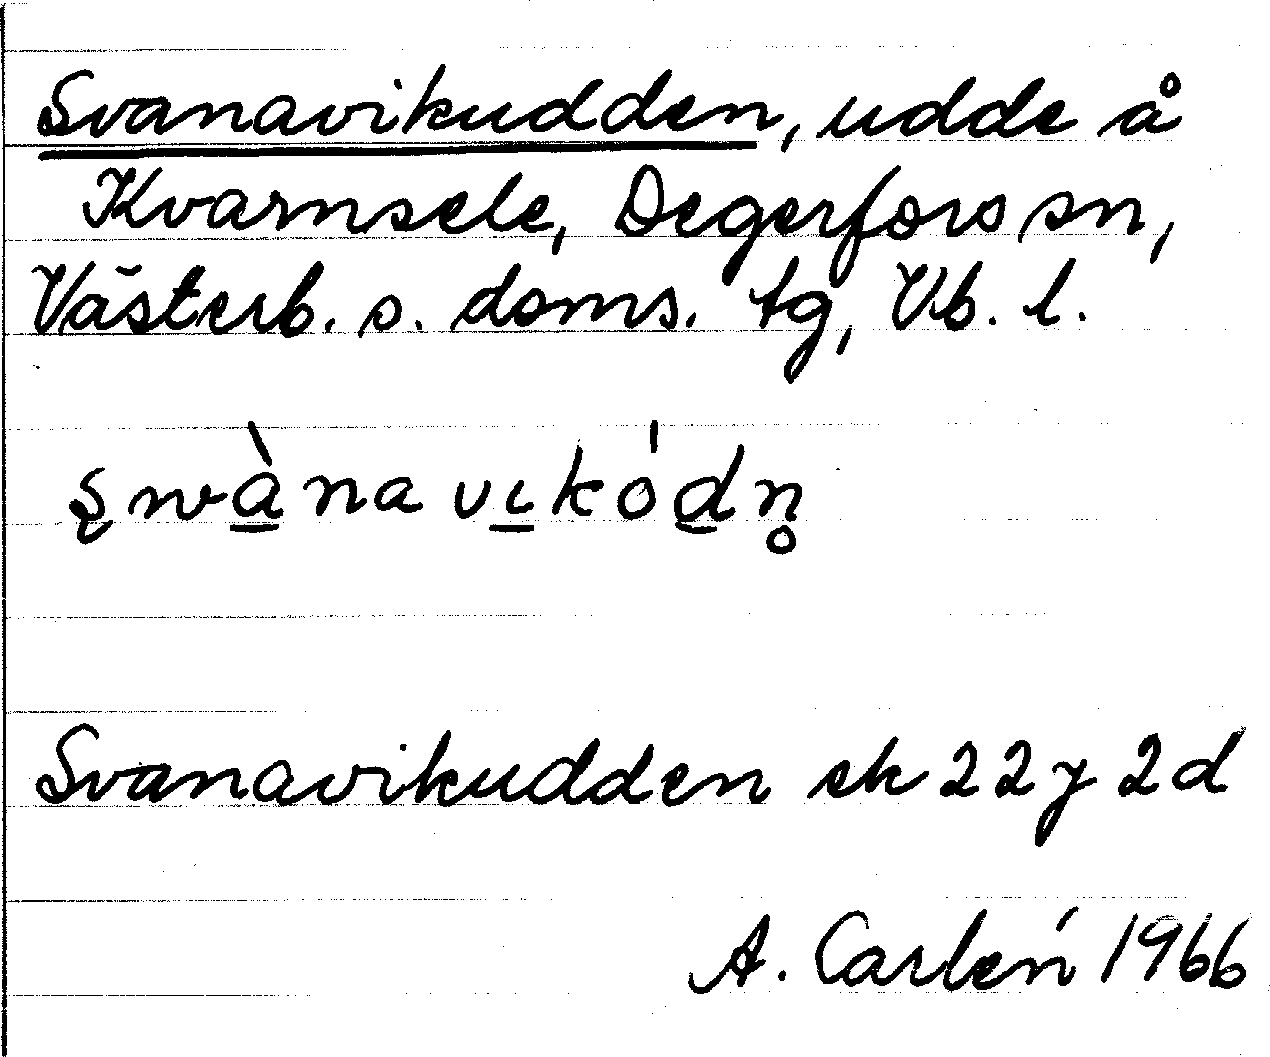 Svanavikudden, udde å
Kvarnsele, Degerfors sn,
Västerb. s. doms. tg, Vb. l.
s̨wàna vıkódn̥
Svanavikudden ek 22 y 2 d
A. Carlén 1966